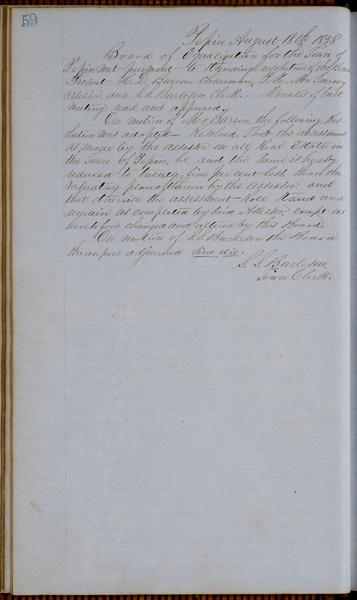 59
Pepin August 18th 1858
Board of Equalization for the Town of
Pepin met pursuant to adjournment
Present H. D. Barron Chairman,
Assessor and S. S. Burleson Clerk. Minutes of last
meeting read and approved,
On motion of Mr Barron the following Res-
olution was adopted - Resolved That the assessment
as made by the assessor on all Real Estate in
the Town of Pepin, be and the same is hereby
reduced to twenty five per cent less than the
valuation placed thereon by the assessor and
that otherwise the assessment Roll stand and
remain as completed by said Assessor except as
heretofore changed and altered by this Board.
On motion of S. S. Burleson the Board
thereupon adjourned Sine die.
S. S. Burleson,
Town Clerk.